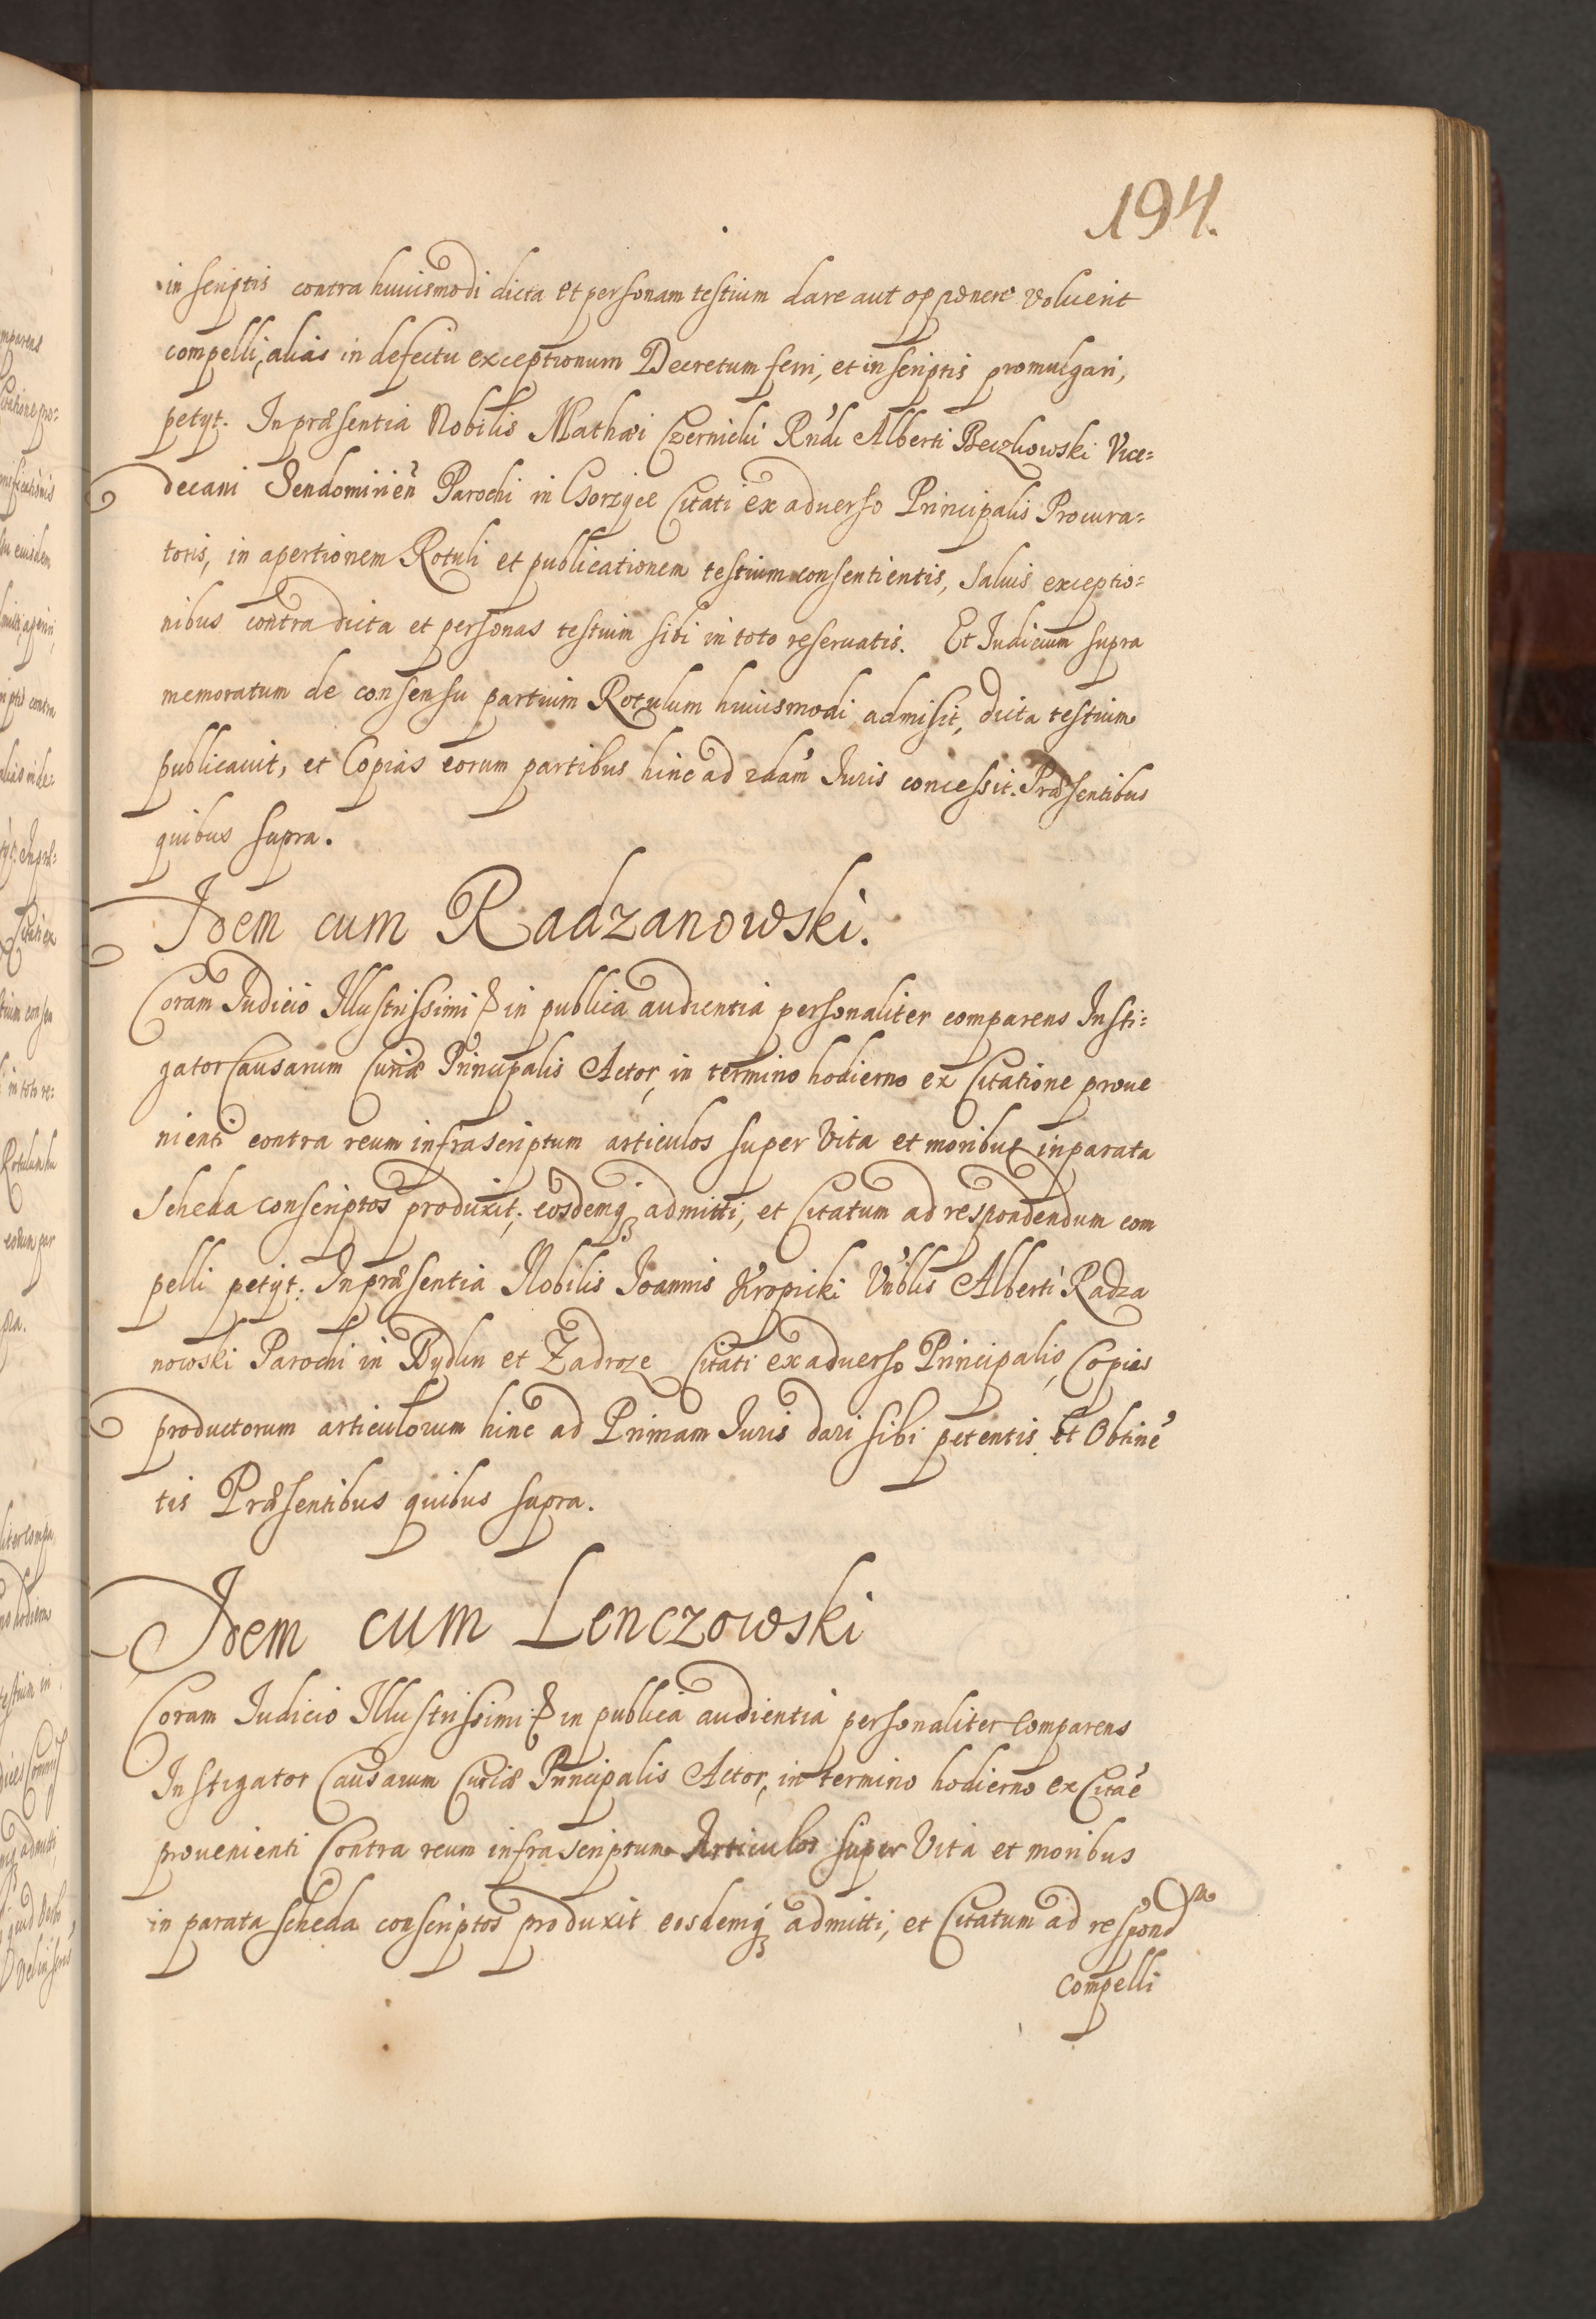 194.
in scriptis contra huiusmodi dicta et personam testium dare aut opponere voluerit
compelli, alias in defectu exceptionum Decretum ferri, et in scriptis promulgari,
petyt. In præsentia Nobilis Mathæi Czernicki Rndi Alberti Beczkowski Vice=
decani Sendomirien Parochi in Gorzyce Citati ex aduerso Principalis Procura=
toris, in apertionem Rotuli et publicationem testium consentientis, saluis exceptio=
nibus contra dicta et personas testium sibi in toto reseruatis. Et Iudicium supra
memoratum de consensu partium Rotulum huiusmodi admisit, dicta testium
publicauit, et Copias eorum partibus hinc ad 2dam Iuris concessit. Præsentibus
quibus supra.
Idem cum Radzanowski.
Coram Iudicio Illustrissimi & in publica audientia personaliter comparens Insti=
gator Causarum Curiæ Principalis Actor, in termino hodierno ex Citatione proue
nienti contra reum infrascriptum articulos super Vita et moribus in parata
Scheda conscriptos produxit; eosdemq admitti, et Citatum ad respondendum com
pelli petyt. In præsentia Nobilis Ioannis Kropicki Vnblis Alberti Radza
nowski Parochi in Bydlin et Zadroze Citati ex aduerso Principalis, Copias
productorum articulorum hinc ad Primam Iuris dari sibi petentis et Obtine
tis Præsentibus quibus supra.
Idem cum Lenczowski
Coram Iudicio Illustrissimi & in publica audientia personaliter comparens
Instigator Causarum Curiæ Principalis Actor, in termino hodierno ex Citae
prouenienti Contra reum infrascriptum Articulos super Vita et moribus
in parata scheda conscriptos produxit eosdemq admitti, et Citatum ad respond
compelli